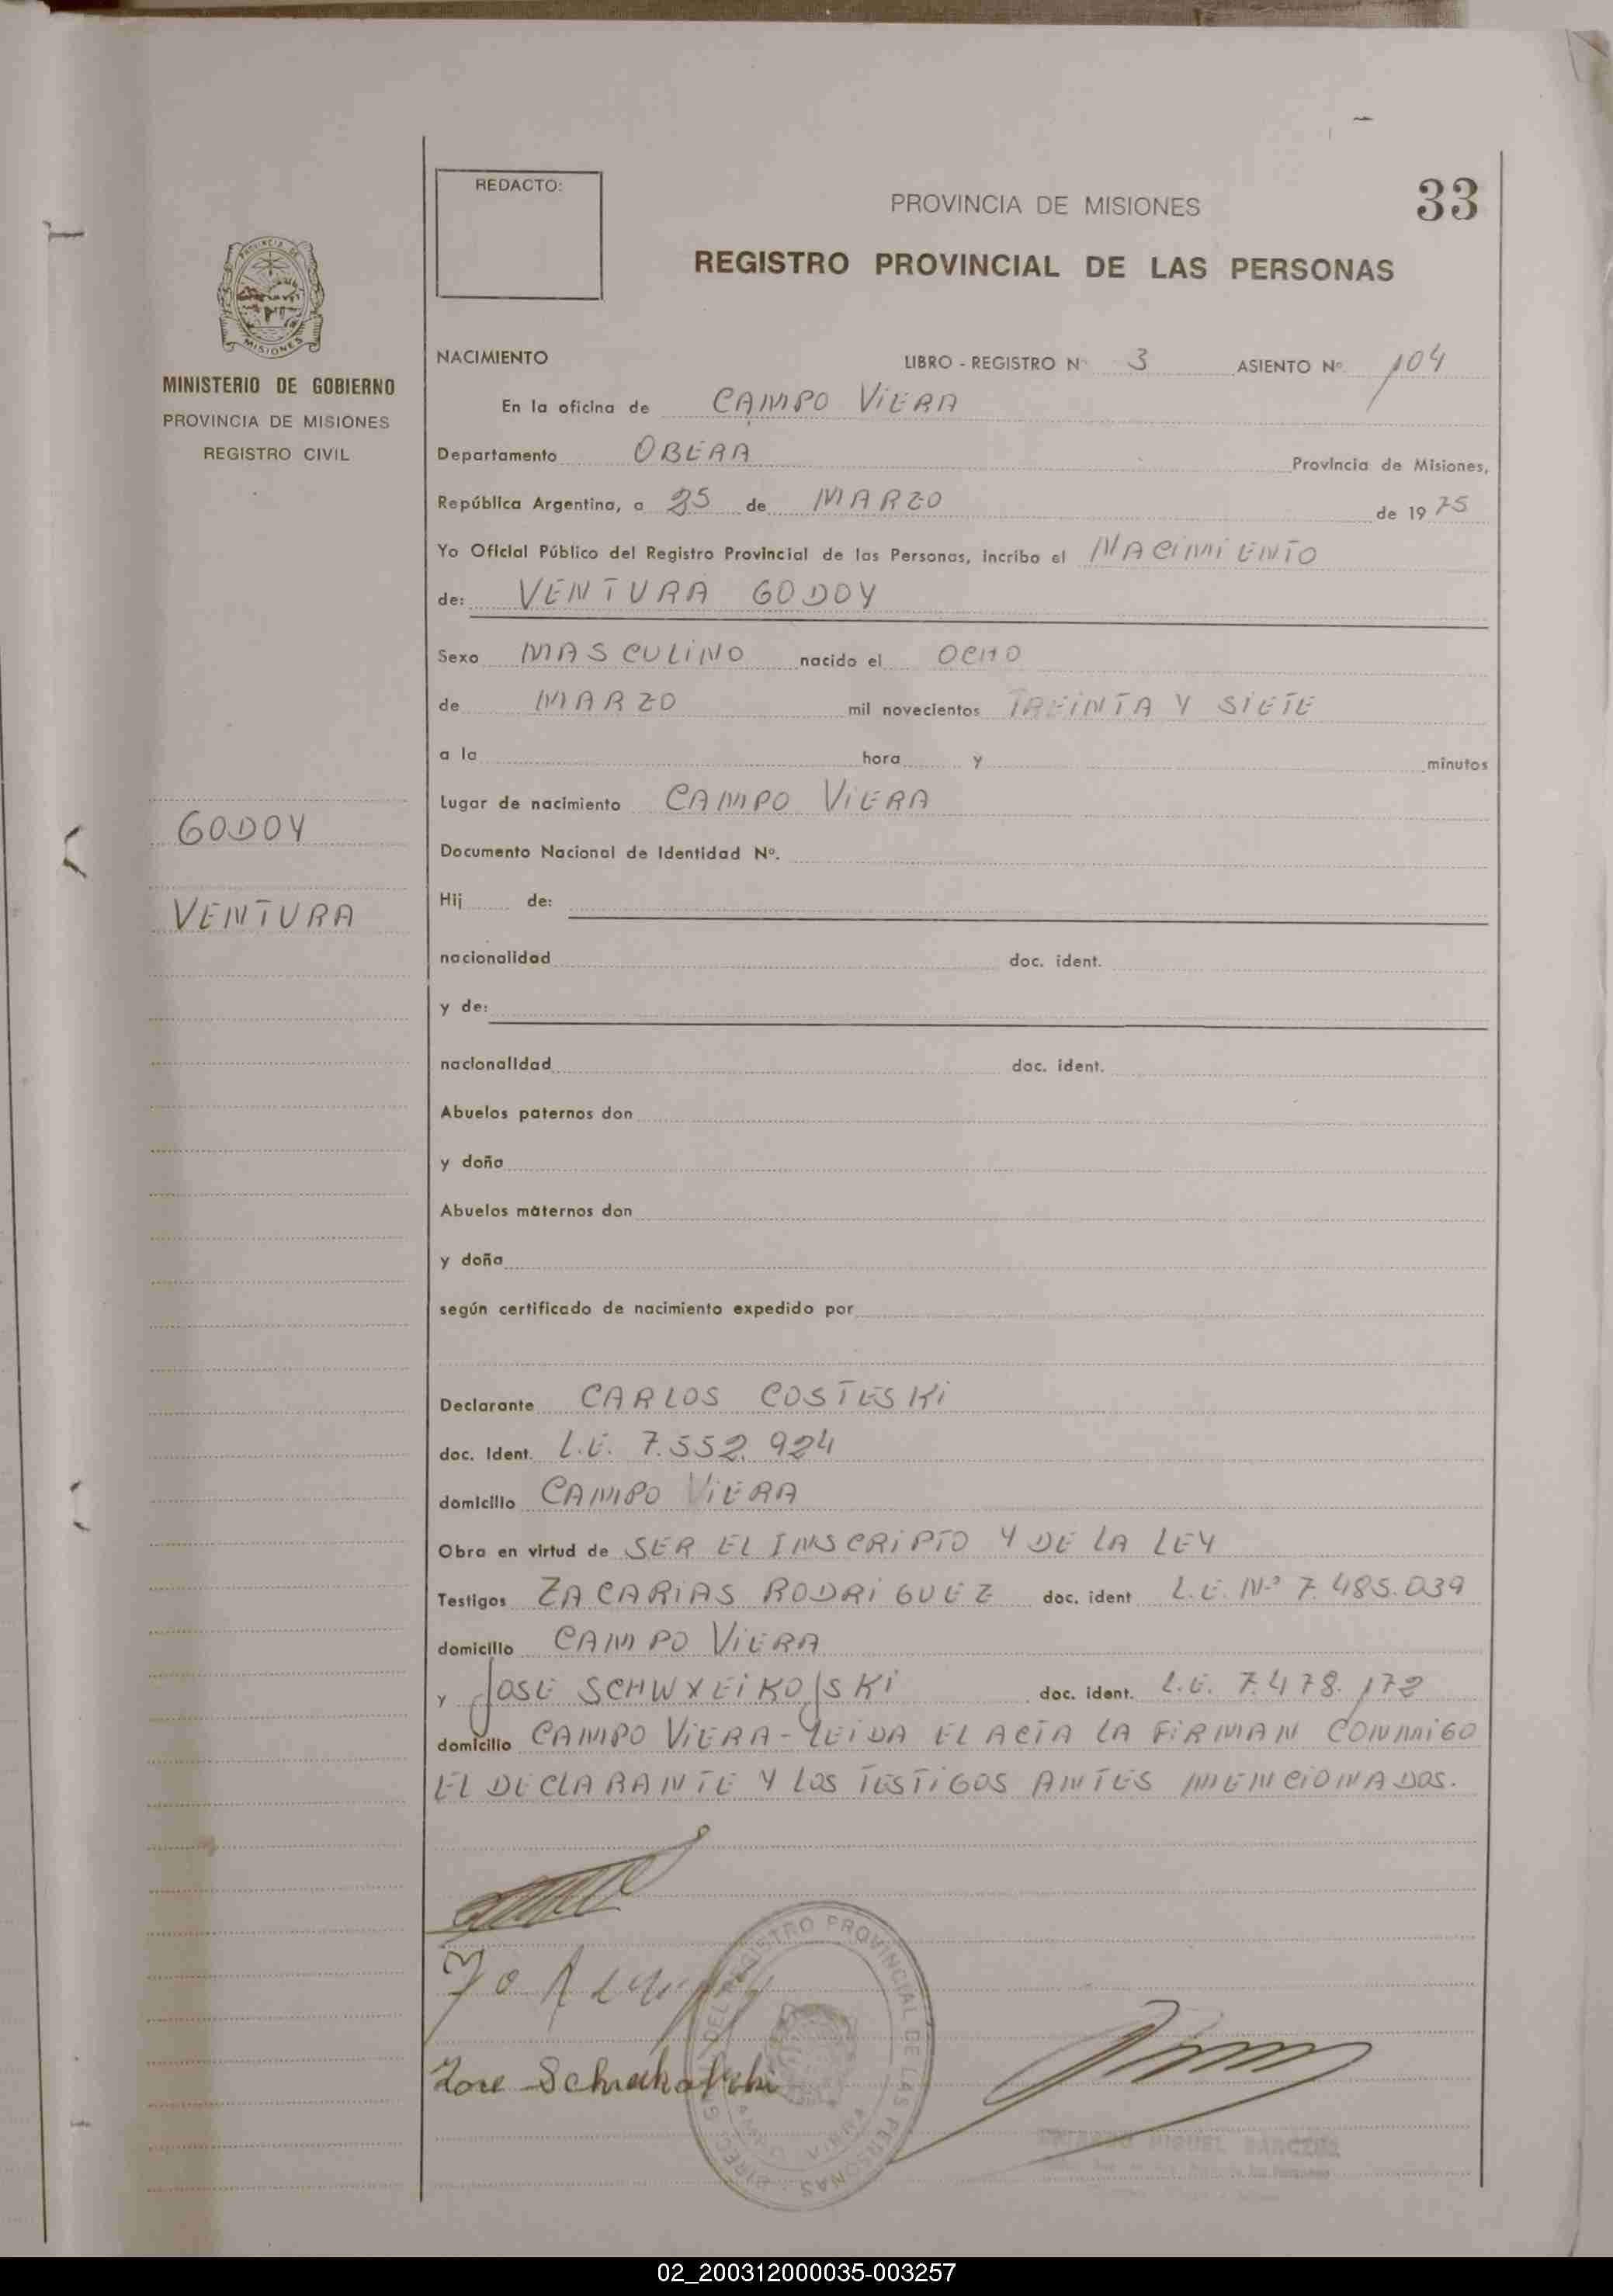 REDACTO:
PROVINCIA DE MISIONES
33
REGISTRO PROVINCIAL DE LAS PERSONAS
MISIONES
MINISTERIO DE GOBIERNO
PROVINCIA DE MISIONES
REGISTRO CIVIL
NACIMIENTO LIBRO - REGISTRO Nº 3 ASIENTO Nº. 104
En la oficina de CAMPO VIERA
Departamento OBERA Provincia de Misiones,
República Argentina, a 25 de MARZO de 19 75
Yo Oficial Público del Registro Provincial de las Personas, incribo el NACIMIENTO
de: VENTURA GODOY
Sexo MASCULINO nacido el OCHO
de MARZO mil novecientos TREINTA Y SIETE
a la hora y minutos
Lugar de nacimiento CAMPO VIERA
GODOY
Documento Nacional de Identidad Nº.
Hij de:
VENTURA
nacionalidad doc. ident.
y de:
nacionalidad doc. ident.
Abuelos paternos don
y doña
Abuelos maternos don
y doña
según certificado de nacimiento expedido por
Declarante CARLOS COSTESKI
doc. Ident. L.E. 7.552.924
domicilio CAMPO VIERA
Obra en virtud de SER EL INSCRIPTO Y DE LA LEY
Testigos ZACARIAS RODRIGUEZ doc. ident L.E. Nº 7.485.039
domicilio CAMPO VIERA
y JOSE SCHWXEIKOfSKI doc. ident. L.E. 7.478.172
domicilio CAMPO VIERA - LEIDA EL ACTA LA FIRMAN CONMIGO
EL DECLARANTE Y LOS TESTIGOS ANTES MENCIONADOS.
REGISTRO PROVINCIAL DE LAS PERSONAS
MIGUEL
02_200312000035-003257